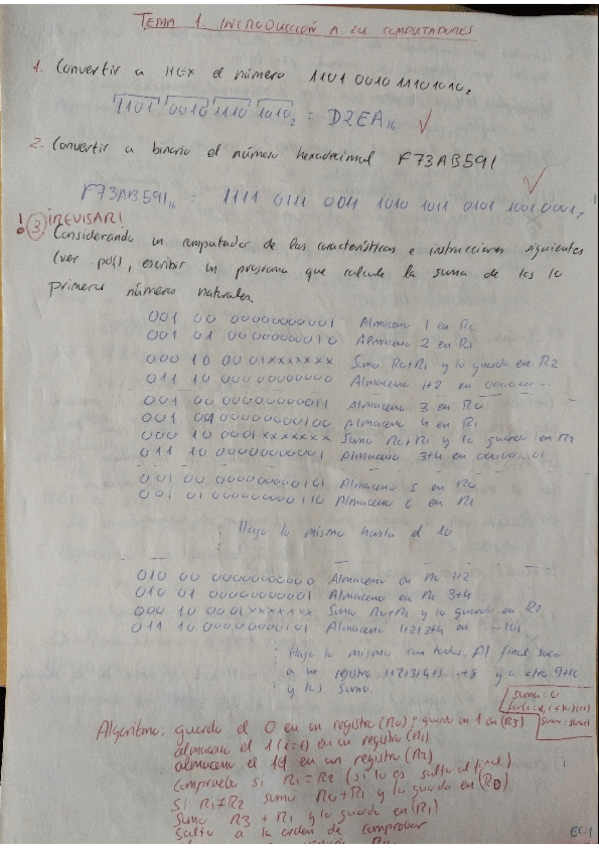 TEMA 1. INTRODUCCIÓN A LOS COMPUTADORES
1. Convertir a HEX el número 1101 0010 11101010₂
1101 0010 1110 1010₂ = D2EA₁₆ ✓
2. Convertir a binario el número hexadecimal F73AB591
F73AB591₁₆ = 1111 0111 0011 1010 1011 0101 1001 0001₂ ✓
¡REVISAR!
3. Considerando un computador de las características e instrucciones siguientes
(ver pdf), escribir un programa que calcule la suma de los 10
primeros números naturales.
001 00 00000000001 Almaceno 1 en R0
001 01 00000000010 Almaceno 2 en R1
000 10 00 01xxxxxxx Sumo R0+R1 y lo guardo en R2
011 10 00000000000 Almaceno 1+2 en 000000...
001 00 00000000011 Almaceno 3 en R0
001 01 00000000100 Almaceno 4 en R1
000 10 0001xxxxxxx Sumo R0+R1 y lo guardo en R2
011 10 00000000001 Almaceno 3+4 en 00000...01
001 00 00000000101 Almaceno 5 en R0
001 01 00000000110 Almaceno 6 en R1
Hago lo mismo hasta el 10
010 00 00000000000 Almaceno en R0 1+2
010 01 00000000001 Almaceno en R1 3+4
000 10 0001xxxxxxx Sumo R0+R1 y lo guardo en R2
011 10 00000000101 Almaceno 1+2+3+4 en ...101
Hago lo mismo con todos. Al final saco
a un registro 1+2+3+4+5...+8 y a otro 9+10
y los sumo.
suma = 0
Algoritmo: guardo el 0 en un registro (R0); guardo un 1 en (R3)
almaceno el 1 (i=1) en un registro (R1)
almaceno el 11 en un registro (R2)
Compruebo si R1=R2 (si lo es salto al final)
Si R1≠R2 sumo R0+R1 y lo guardo en (R0)
Sumo R3 + R1 y lo guardo en (R1)
Salto a la orden de comprobar
EC-1